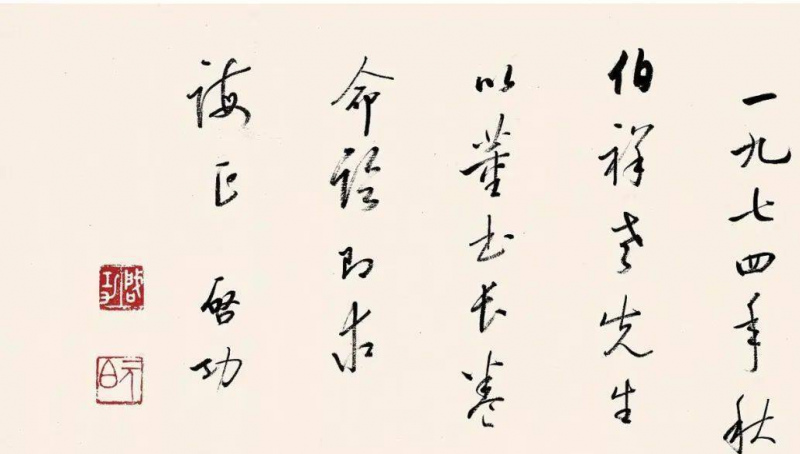 一九七四年秋
伯祥老先生
以董书长卷
命临即求
诲正 启功
启功
元白